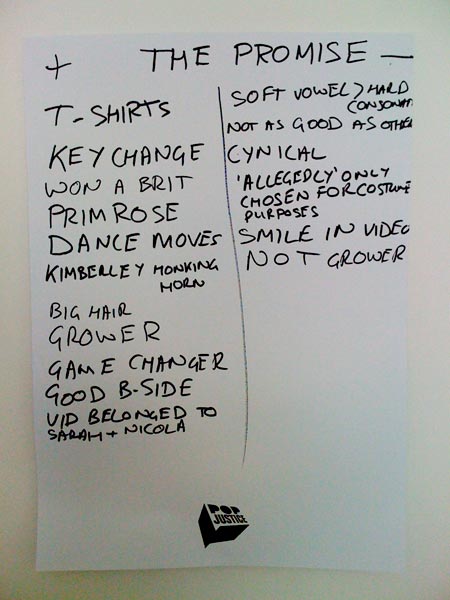 + THE PROMISE —
T-SHIRTS
KEY CHANGE
WON A BRIT
PRIMROSE
DANCE MOVES
KIMBERLEY HONKING
HORN
BIG HAIR
GROWER
GAME CHANGER
GOOD B-SIDE
VID BELONGED TO
SARAH + NICOLA
SOFT VOWEL > HARD
CONSONAN
NOT AS GOOD AS OTHER
CYNICAL
'ALLEGEDLY' ONLY
CHOSEN FOR COSTUME
PURPOSES
SMILE IN VIDEO
NOT GROWER
POP
JUSTICE